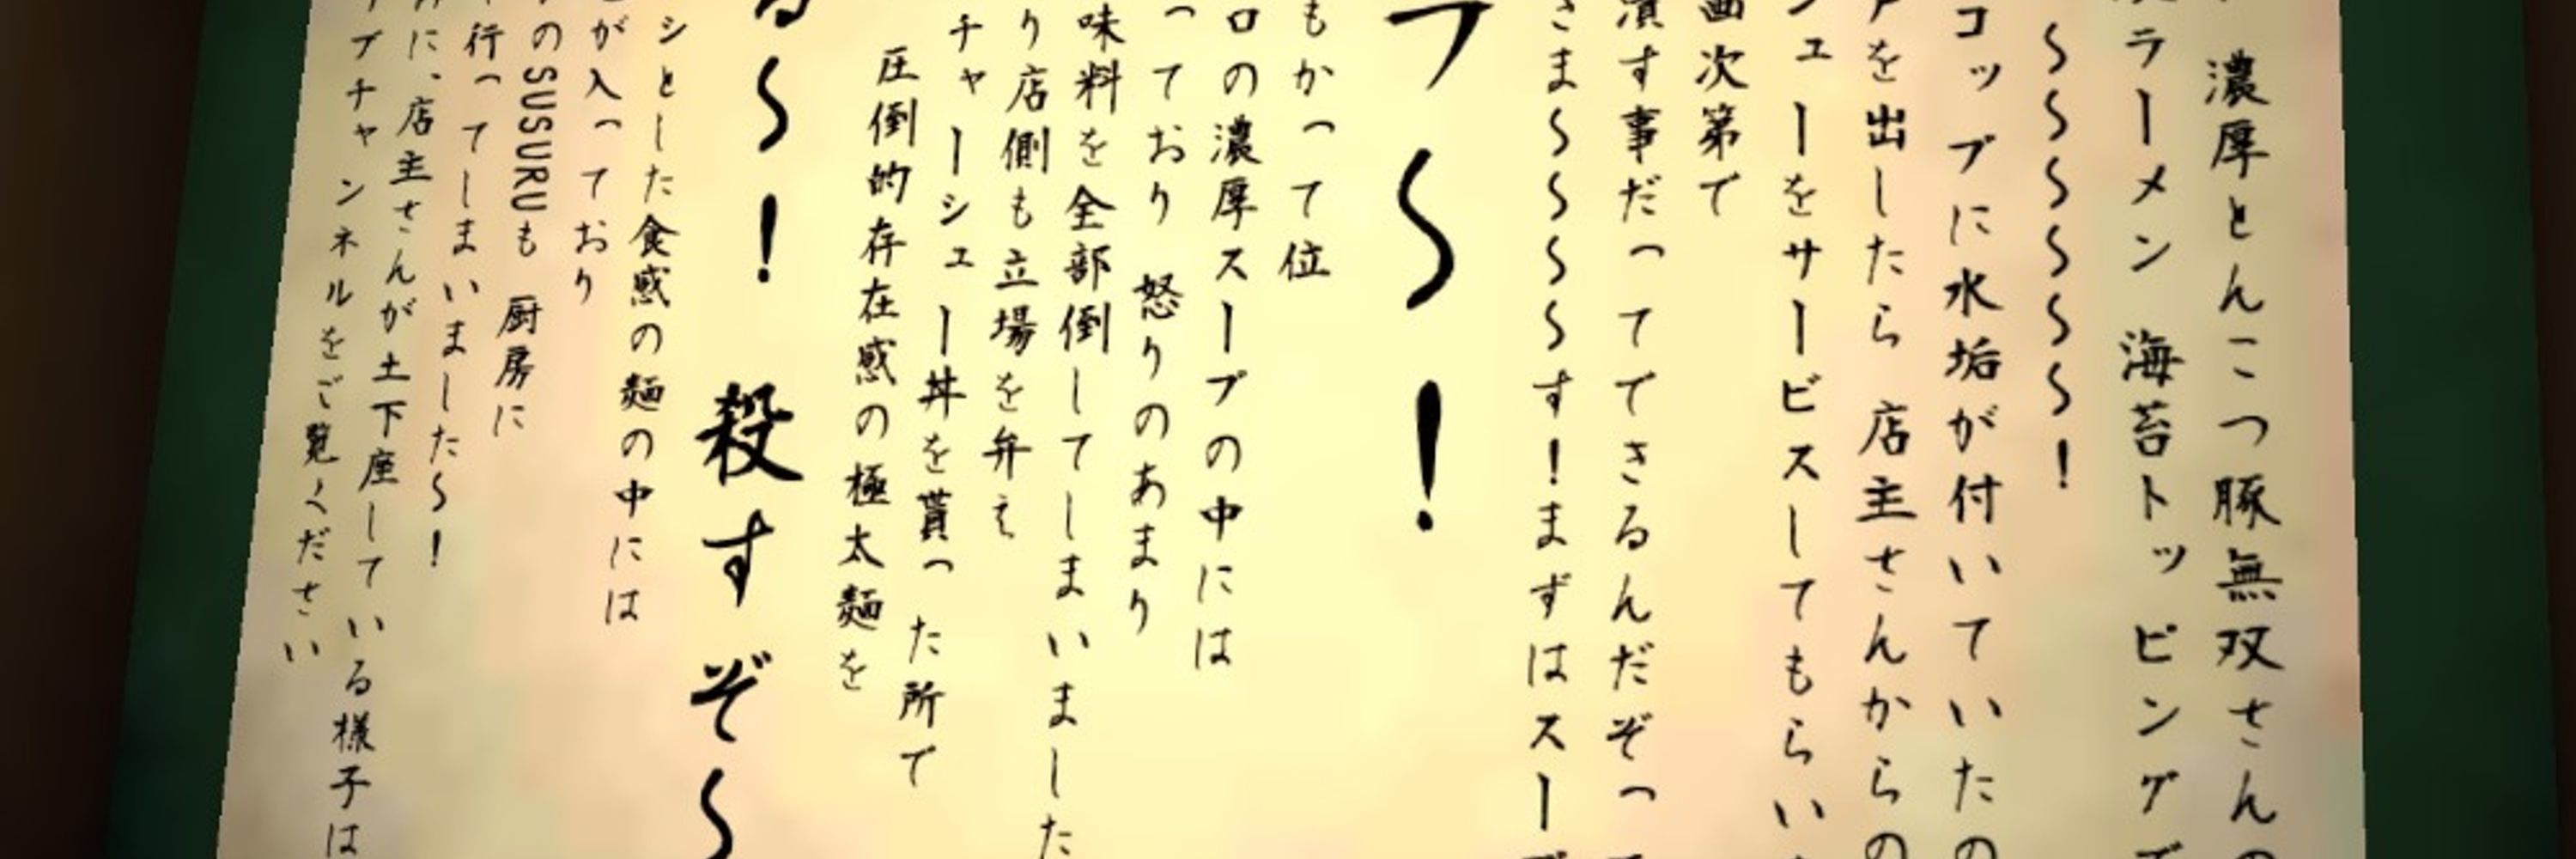 濃厚とんこつ豚無双さんの
ラーメン 海苔トッピングで
～～～～～～！
コップに水垢が付いていたの
を出したら 店主さんからの
シューをサービスしてもらい
画次第で
潰す事だってできるんだぞって
さま～～～～す！まずはスープ
フ～！
もかって位
ロの濃厚スープの中には
っており 怒りのあまり
味料を全部倒してしまいました
り店側も立場を弁え
チャーシュー丼を貰った所で
圧倒的存在感の極太麺を
る～！ 殺すぞ～
シとした食感の麺の中には
が入っており
のSUSURUも 厨房に
行ってしまいました～！
に、店主さんが土下座している様子は
ブチャンネルをご覧ください